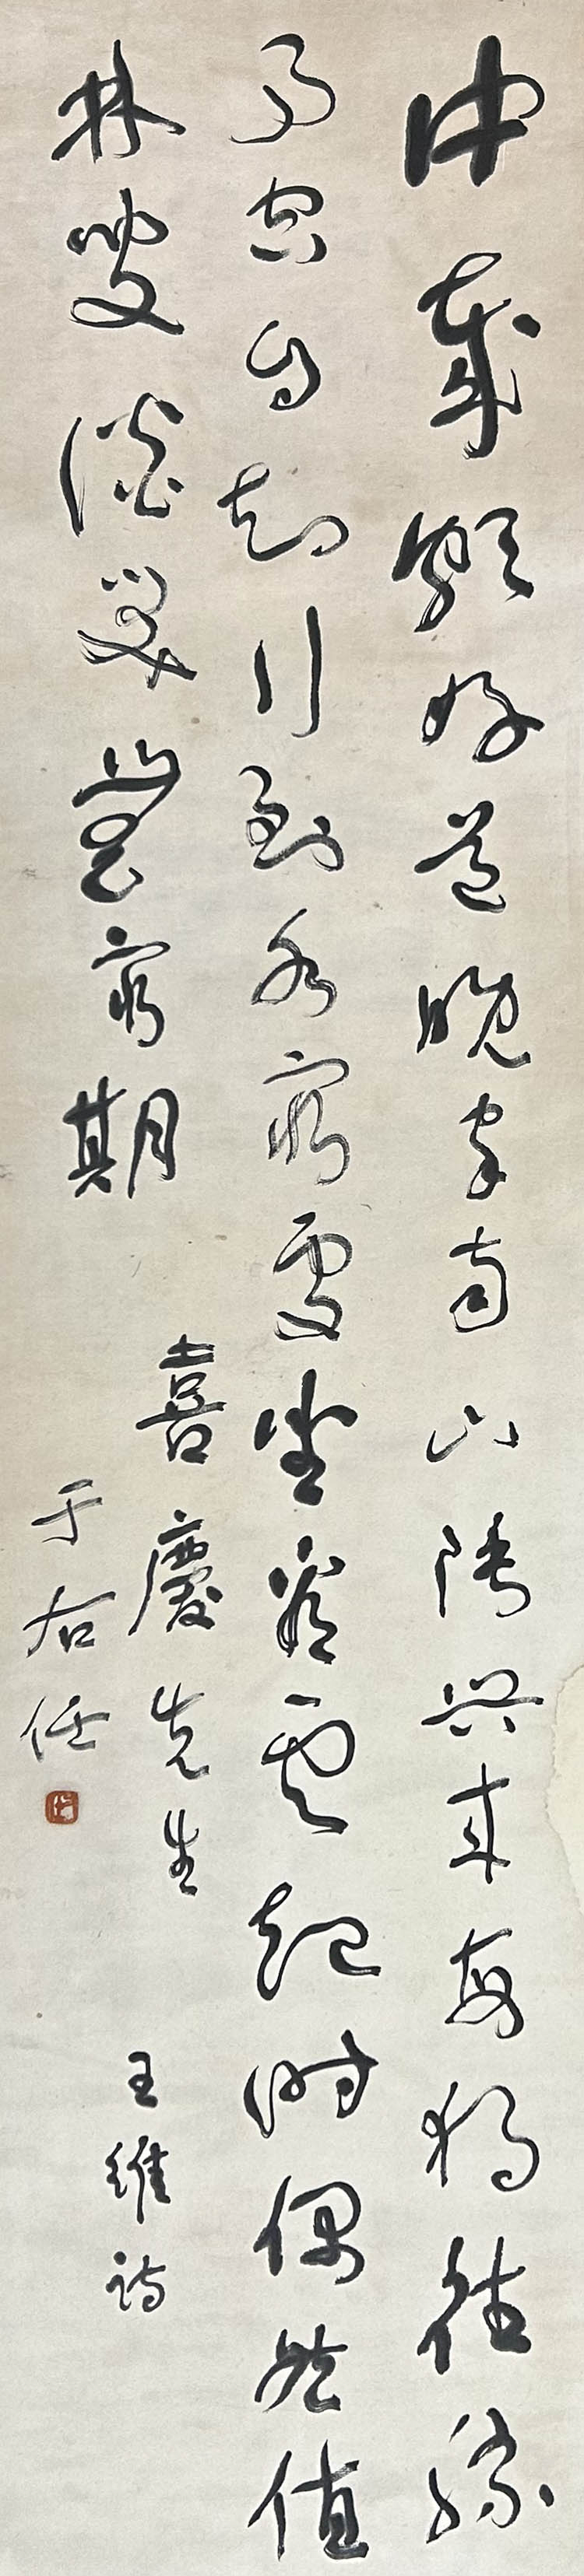 中歲頗好道晚家南山陲興來每獨往勝
事空自知行到水窮處坐看雲起時偶然值
林叟談笑豈窮期
喜慶先生
王維詩
于右任